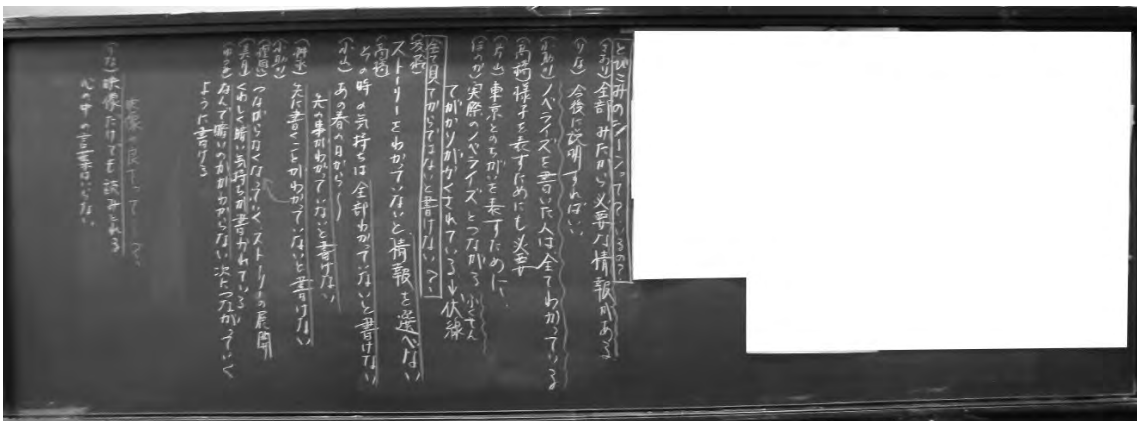 とびこみのシーンって?いるの?
(さおり)全部みたから必要な情報がある
(りな)今後に説明すればいい、
(小動り)ノベライズを書いた人は全てわかっている
(高橋)様子を表すためにも必要
(片山)東京とのちがいを表すために、
(ほのか)実際のノベライズとつながる
てがかりがかくされている→伏線
全て見てからではないと書けない?
ストーリーをわかっていないと情報を選べない
(高橋)その時の気持ちは全部わかっていないと書けない
(小山)あの春の日から〜
先の事がわかっていないと書けない
先に書くことがわかっていないと書けない
つながらなくなっていくストーリーの展開
くわしく暗い気持ちが書かれている
なんで暗いのかがわからない次につながっていく
ように書ける
映像の良さって
(りな)映像だけでも読みとれる
心の中の言葉はいらない、